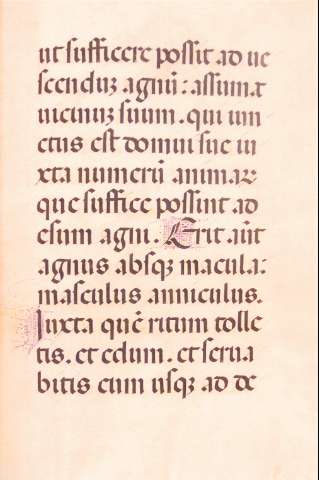 ut sufficere possit ad ve
scenduʒ agnū: assumat
vicinuʒ suum. qui iun
ctus est domui sue iu
xta numerū animaꝝ
que suffice possint ad
esum agni. Erit aūt
agnus absqʒ macula:
masculus anniculus.
Iuxta quē ritum tolle
tis. et edum. et serua
bitis eum usqʒ ad de